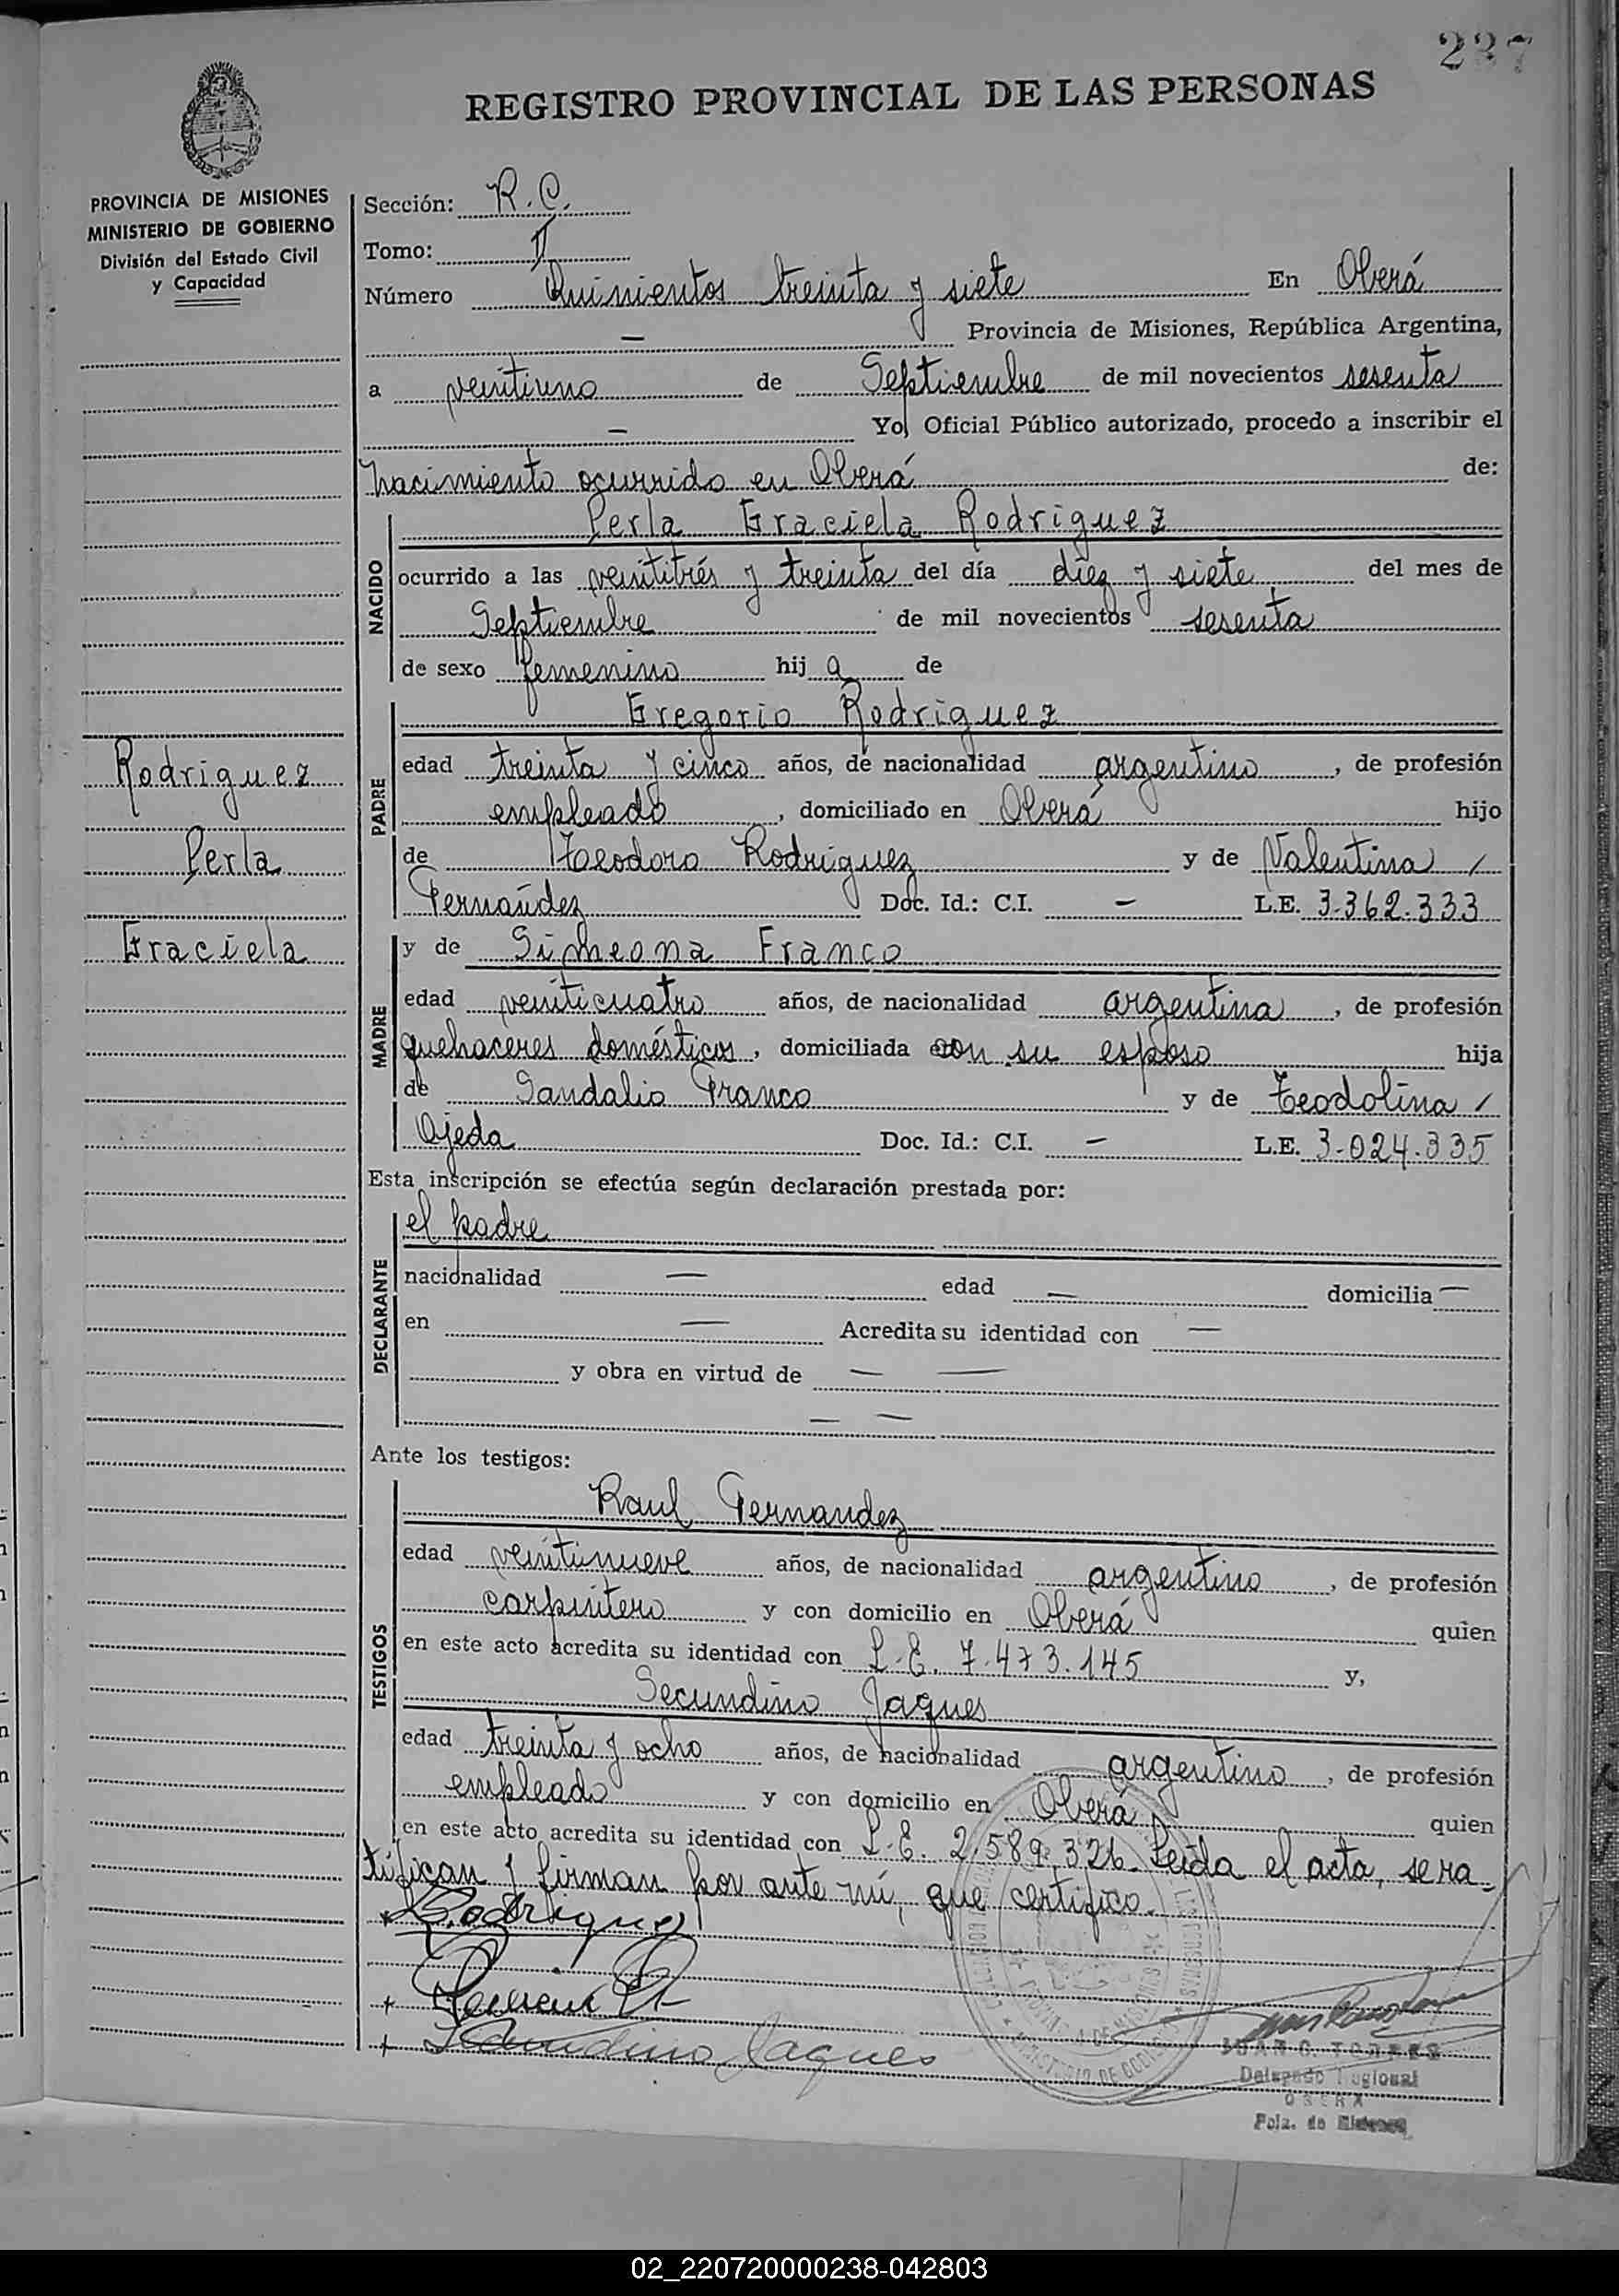 237
REGISTRO PROVINCIAL DE LAS PERSONAS
PROVINCIA DE MISIONES
MINISTERIO DE GOBIERNO
División del Estado Civil
y Capacidad
Sección: R.C.
Tomo: II
Número Quinientos treinta y siete En Oberá
— Provincia de Misiones, República Argentina,
a veintiuno de Septiembre de mil novecientos sesenta
— Yo, Oficial Público autorizado, procedo a inscribir el
nacimiento ocurrido en Oberá de:
NACIDO
Perla Graciela Rodriguez
ocurrido a las veintitrés y treinta del día diez y siete del mes de
Septiembre de mil novecientos sesenta
de sexo femenino hij a de
PADRE
Gregorio Rodriguez
edad treinta y cinco años, de nacionalidad argentino, de profesión
empleado, domiciliado en Oberá hijo
de Teodoro Rodriguez y de Valentina /
Fernández Doc. Id.: C.I. — L.E. 3.362.333
Rodriguez
Perla
Graciela
MADRE
y de Simeona Franco
edad veinticuatro años, de nacionalidad argentina, de profesión
quehaceres domésticos, domiciliada con su esposo hija
de Sandalio Franco y de Teodolina /
Ojeda Doc. Id.: C.I. — L.E. 3.024.335
Esta inscripción se efectúa según declaración prestada por:
DECLARANTE
el padre
nacionalidad — edad — domicilia —
en — Acredita su identidad con —
y obra en virtud de — —
— —
Ante los testigos:
TESTIGOS
Raul Fernandez
edad veintinueve años, de nacionalidad argentino, de profesión
carpintero y con domicilio en Oberá quien
en este acto acredita su identidad con L.E. 7.473.145 y,
Secundino Jaques
edad treinta y ocho años, de nacionalidad argentino, de profesión
empleado y con domicilio en Oberá quien
en este acto acredita su identidad con L.E. 2.589.326. Leída el acta, se ra-
tifican y firman por ante mí, que certifico.
Rodriguez
Secundino Jaques
JUAN C. TORRES
Delegado Regional
OBERA
Pcia. de Misiones
02_220720000238-042803